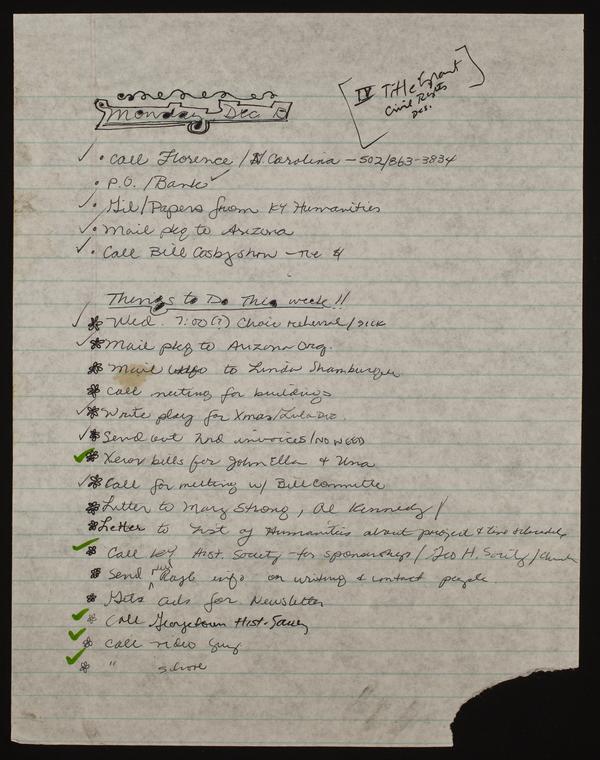 IV Title Grant
Civil Rights
Des.
Monday, Dec 10
• Call Florence / N Carolina – 502/863-3834
• P.O. / Bank
• Gil/Papers from KY Humanities
• Mail pkg to Arizona
• Call Bill Cosby show – re
Things to Do This week!!
Wed. 7:00(?) Choir rehersal/sick
Mail pkg to Arizona Org.
Mail info to Linda Shamburger
Call meeting for buildings
Write play for Xmas/
Send out 2nd invoices/NO NEED
Xerox bills for John Ella & Una
Call for meeting w/ Bill Committe
Letter to Mary Strong, Al Kennedy /
Letter to of Humanities about project & time schedule
Call KY Hist. Society for sponsorship / Geo H. Society /
Send info on writing & contact people
Gets ads for Newsletter
Call Georgetown Hist. Socity
Call video guy
" school